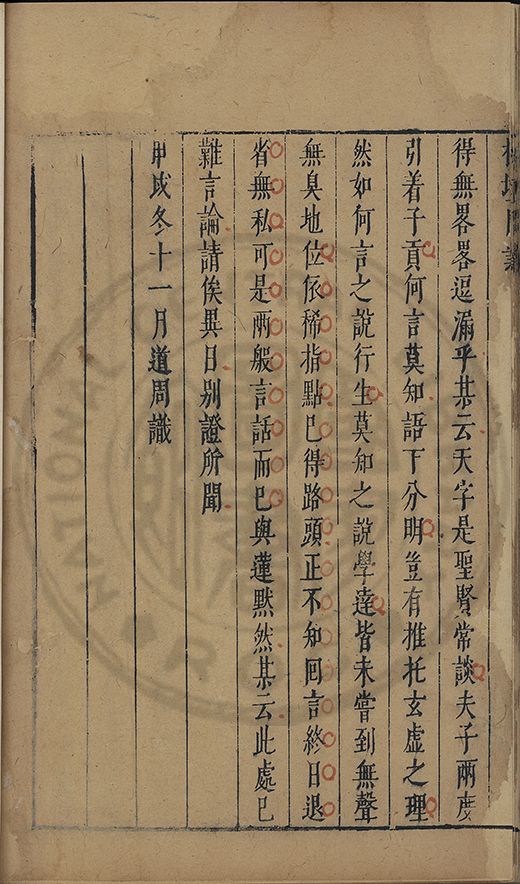 得無畧畧逗漏乎某云天字是聖賢常談夫子兩度
引着子貢何言莫知語下分明豈有推托玄虛之理
然如何言之說行生莫知之說學達皆未嘗到無聲
無臭地位依稀指點已得路頭正不知回言終日退
省無私可是兩般言話而已與蓮默然某云此處已
難言論請俟異日别證所聞
甲戌冬十一月道周識